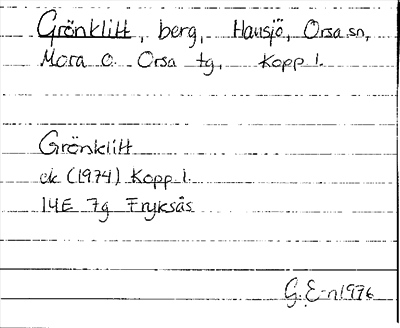 Grönklitt, berg, Hansjö, Orsa sn,
Mora o. Orsa tg, Kopp l.
Grönklitt
ek (1974) Kopp l.
14E 7g Fryksås
G. E-n 1976